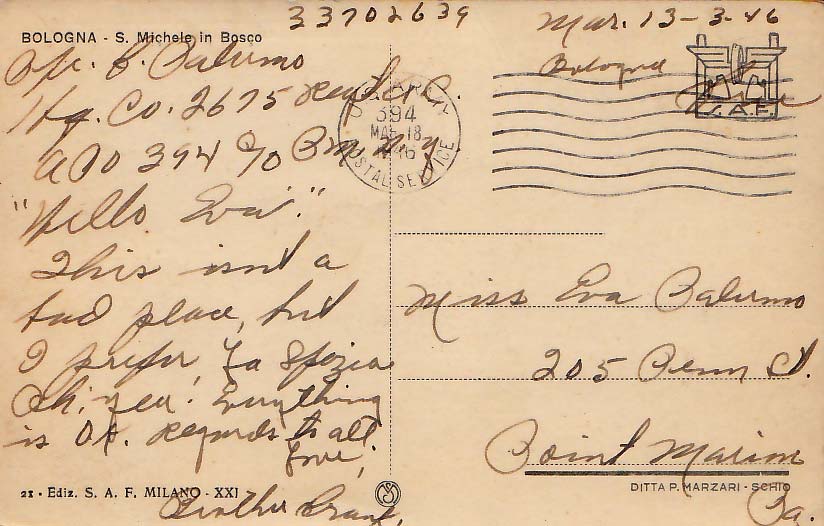 33702639
Mar. 13-3-46
BOLOGNA - S. Michele in Bosco
Bologna
Pfc. B. Palermo
Hq. Co. 2675
APO 394 c/o Pm, N.Y.
U.S. ARMY
394
MAR 18
46
POSTAL SERVICE
S.A.F.
"Hello Eva."
This isn't a
bad place, but
I prefer La Spezia
Oh, yea! Everything
is OK. Regards to all
Love,
Brother Frank,
Miss Eva Palermo
205 Penn St.
Point Marion
Pa.
21 - Ediz. S. A. F. MILANO - XXI
DITTA P. MARZARI - SCHIO